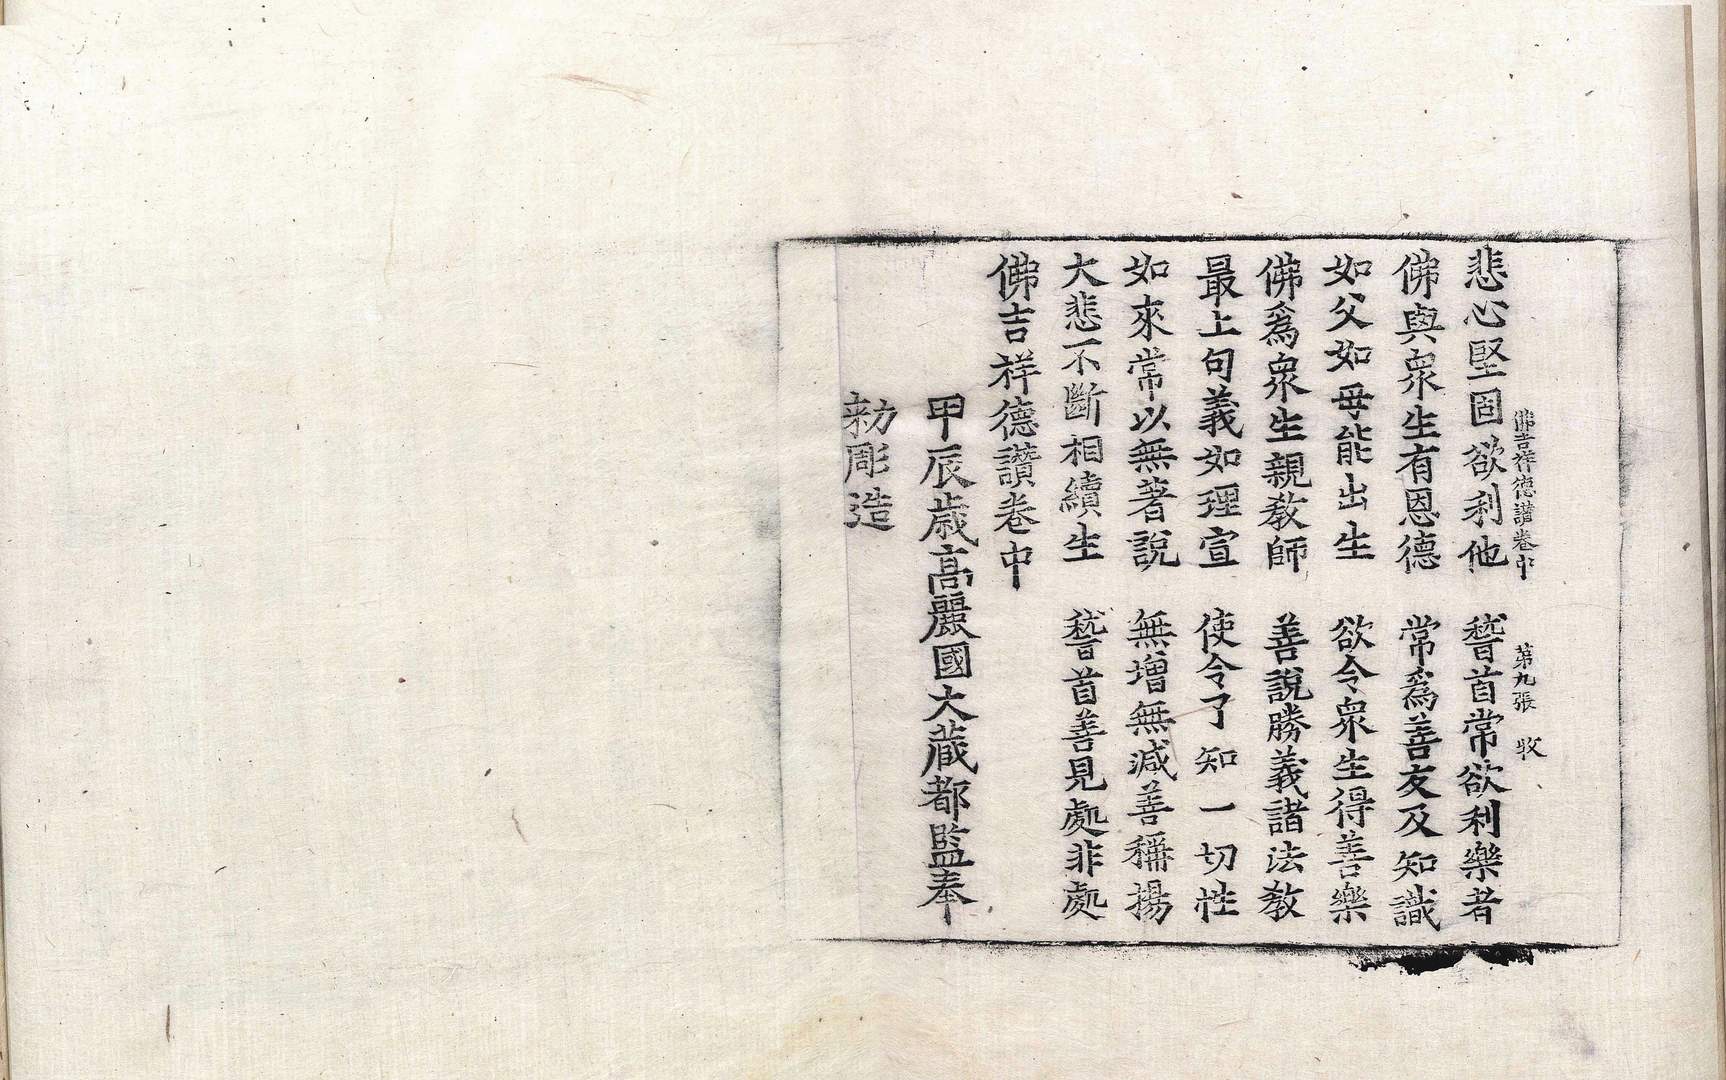 佛吉祥德讃卷中　第九張　收
悲心堅固欲利他　稽首常欲利樂者
佛與衆生有恩德　常爲善友及知識
如父如母能出生　欲令衆生得善樂
佛爲衆生親教師　善說勝義諸法教
最上句義如理宣　使令了知一切性
如來常以無著說　無增無減善稱揚
大悲不斷相續生　稽首善見處非處
佛吉祥德讃卷中
甲辰歲高麗國大藏都監奉
勑彫造